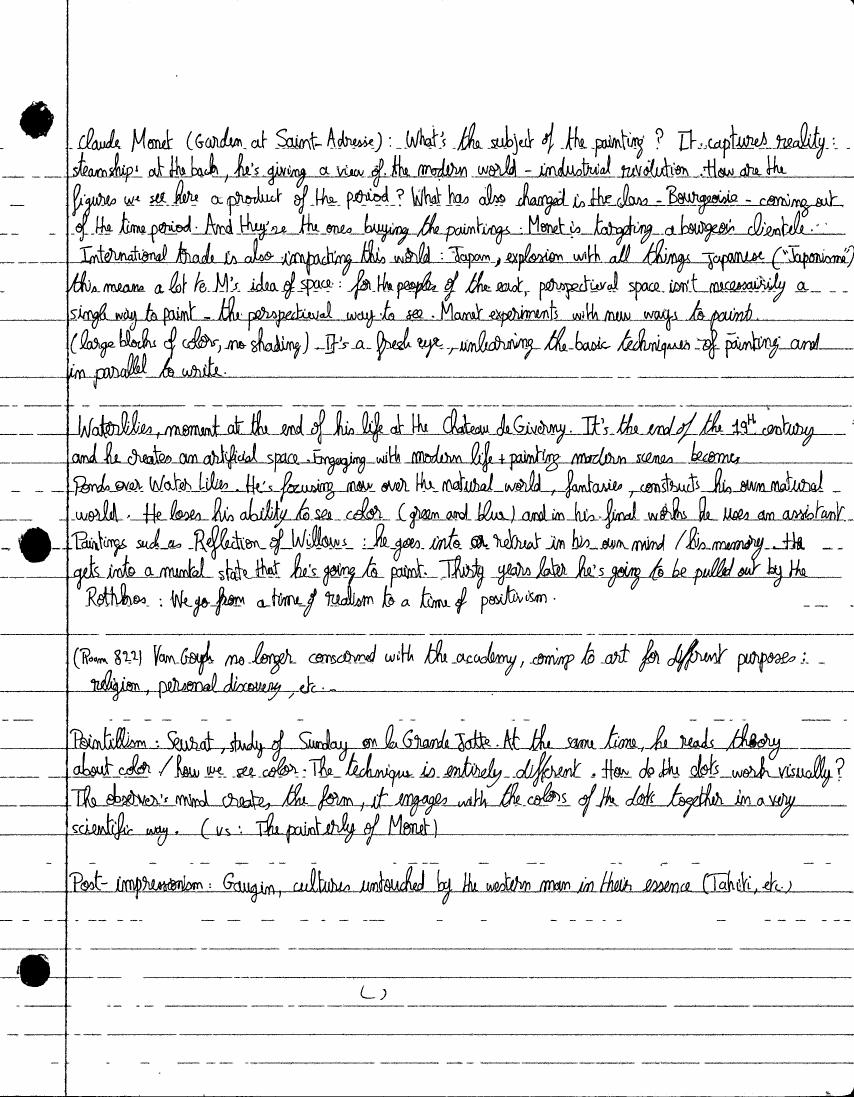 Claude Monet (Garden at Saint-Adresse): What's the subject of the painting? It captures reality:
steamships at the back, he's giving a view of the modern world - industrial revolution. How are the
figures we see here a product of the period? What has also changed is the class - Bourgeoisie - coming out
of the time period. And they're the ones buying the paintings. Monet is targeting a bourgeois clientele...
International trade is also impacting this world: Japan, explosion with all things Japanese ("Japonisme")
this means a lot to M's idea of space: for the peoples of the east, perspectival space isn't necessairily a
single way to paint - the perspectival way to see. Manet experiments with new ways to paint.
(large blocks of color, no shading). It's a fresh eye, unlearning the basic techniques of painting and
in parallel to write.
Waterlilies, moment at the end of his life at the Chateau de Giverny. It's the end of the 19th century
and he creates an artificial space. Engaging with modern life + painting modern scenes becomes
Ponds over Water Lilies. He's focusing now over the natural world, fantasies, constructs his own natural
world. He loses his ability to see color (green and blue) and in his final works he uses an assistant
Paintings such as Reflection of Willows: he goes into a retreat in his own mind / his memory. He
gets into a mental state that he's going to paint. Thirty years later he's going to be pulled out by the
Rothkos: We go from a time of realism to a time of positivism.
(Room 822) Van Gogh no longer conscerned with the academy, coming to art for different purposes:
religion, personal discovery, etc.
Pointillism: Seurat, study of Sunday on la Grande Jatte. At the same time, he reads theory
about color / how we see color. The technique is entirely different. How do the dots work visually?
The observer's mind creates the form, it engages with the colors of the dots together in a very
scientific way. (vs: The painterly of Monet)
Post-impressionism: Gaugin, cultures untouched by the western man in their essence (Tahiti, etc.)